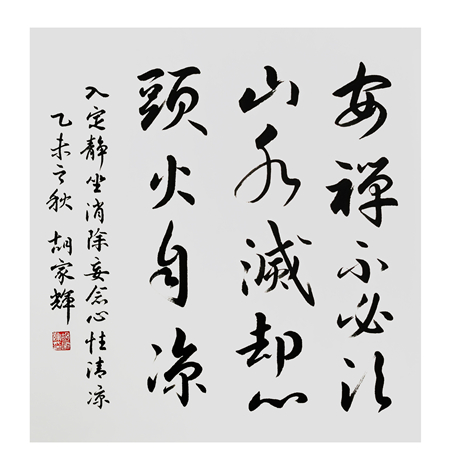 安禪不必须
山水滅却心
頭火自凉
入定静坐消除妄念心性清凉
乙未之秋 胡家輝